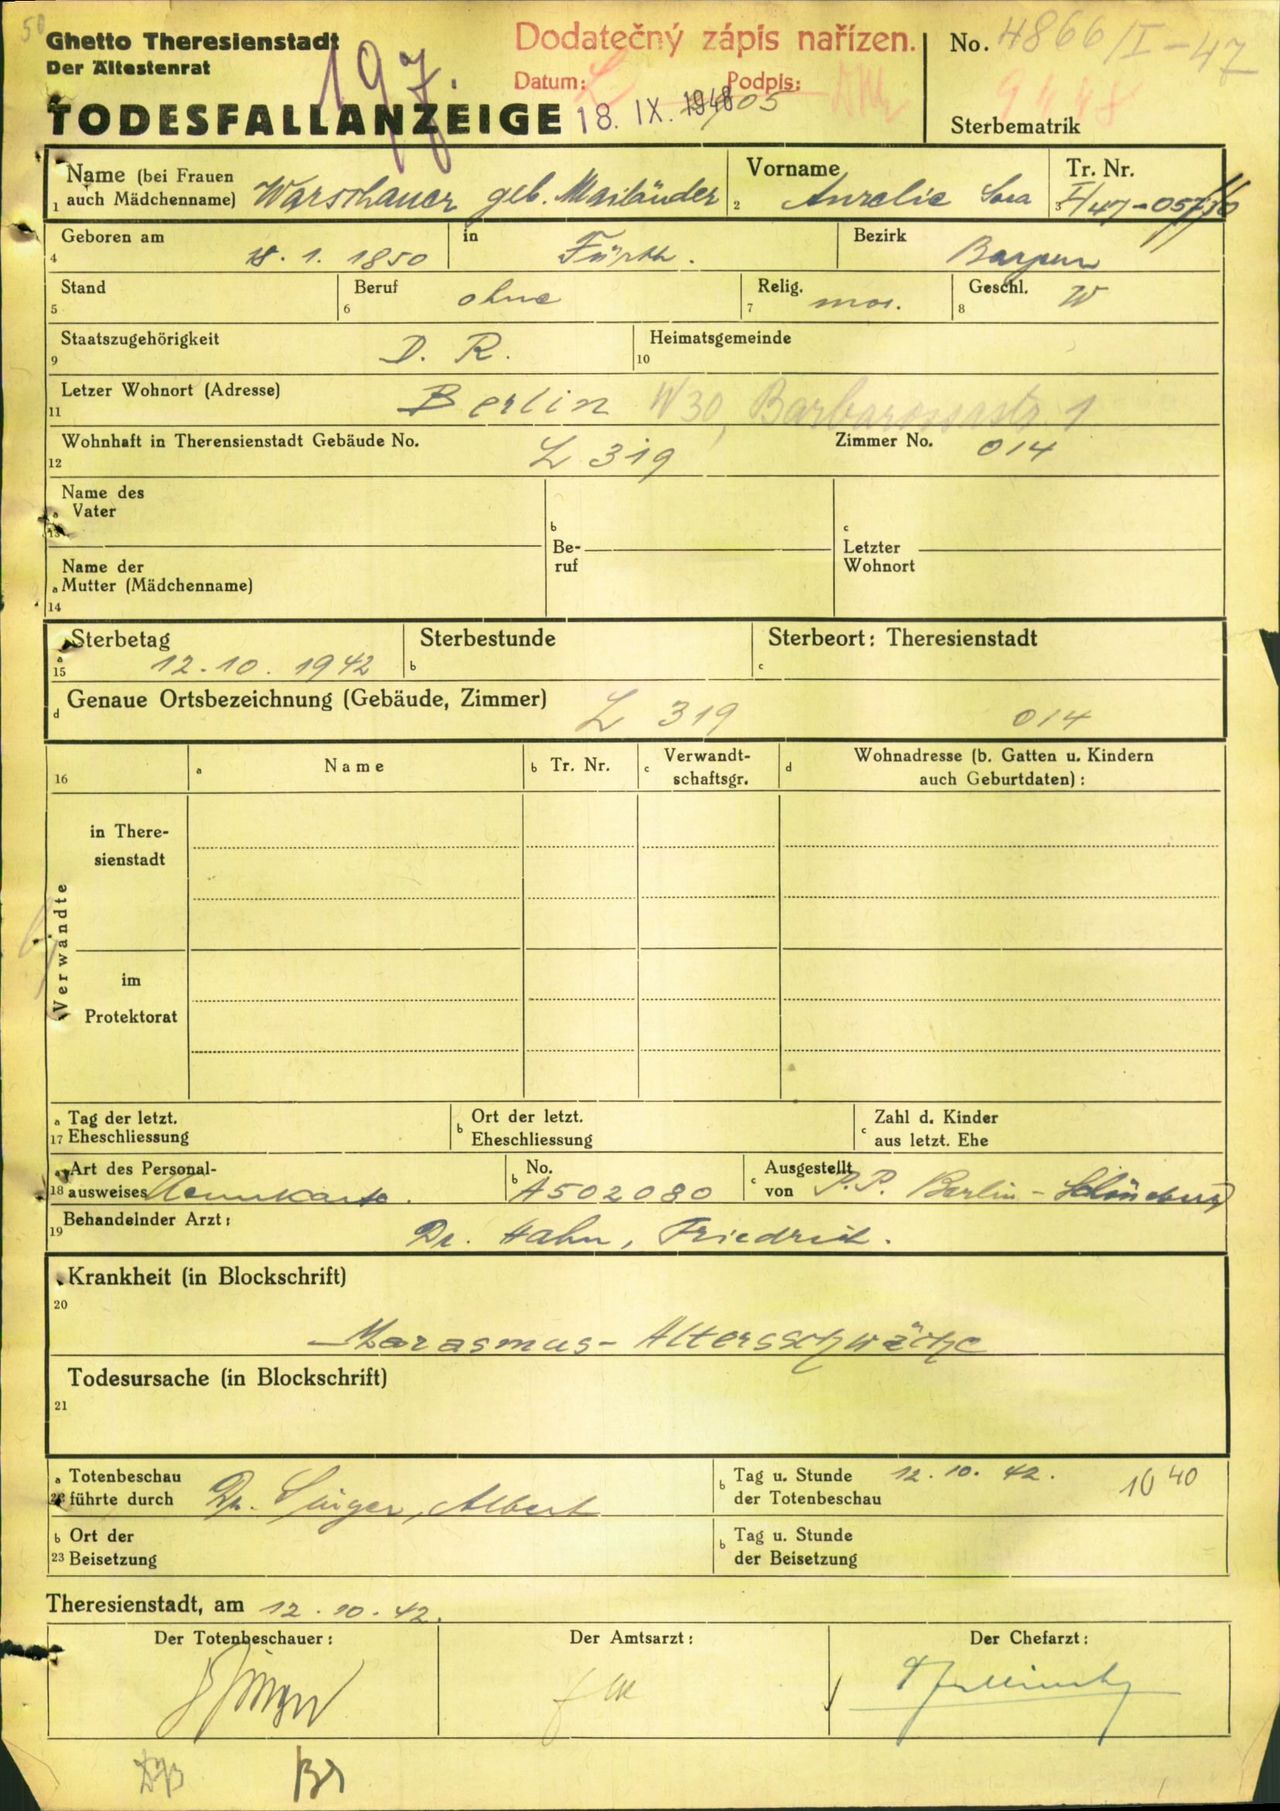 Ghetto Theresienstadt
Der Ältestenrat
TODESFALLANZEIGE
197.
Dodatečný zápis nařízen.
Datum: Podpis:
18. IX. 1948
No. 4866/I-47
9448
Sterbematrik
1 Name (bei Frauen auch Mädchenname) Warschauer geb. Mailänder
2 Vorname Aurelie Sara
3 Tr. Nr. I/47-05730
4 Geboren am 18. 1. 1850 in Fürth. Bezirk Bayern
5 Stand
6 Beruf ohne
7 Relig. mos.
8 Geschl. W
9 Staatszugehörigkeit D. R.
10 Heimatsgemeinde
11 Letzer Wohnort (Adresse) Berlin W30, Barbarossastr. 1
12 Wohnhaft in Therensienstadt Gebäude No. L 319 Zimmer No. 014
13 a Name des Vater
b Beruf
c Letzter Wohnort
14 a Name der Mutter (Mädchenname)
15 a Sterbetag 12. 10. 1942
b Sterbestunde
c Sterbeort: Theresienstadt
d Genaue Ortsbezeichnung (Gebäude, Zimmer) L 319 014
16 a Name b Tr. Nr. c Verwandtschaftsgr. d Wohnadresse (b. Gatten u. Kindern auch Geburtdaten):
Verwandte
in Theresienstadt
im Protektorat
17 a Tag der letzt. Eheschliessung
b Ort der letzt. Eheschliessung
c Zahl d. Kinder aus letzt. Ehe
18 a Art des Personalausweises Kennkarte.
b No. A502080
c Ausgestellt von P.P. Berlin-Schöneberg
19 Behandelnder Arzt: Dr. Hahn, Friedrich.
20 Krankheit (in Blockschrift)
Marasmus - Altersschwäche
21 Todesursache (in Blockschrift)
22 a Totenbeschau führte durch Dr. Singer, Albert
b Tag u. Stunde der Totenbeschau 12. 10. 42. 10 40
23 b Ort der Beisetzung
b Tag u. Stunde der Beisetzung
Theresienstadt, am 12. 10. 42.
Der Totenbeschauer:
Der Amtsarzt:
Der Chefarzt: